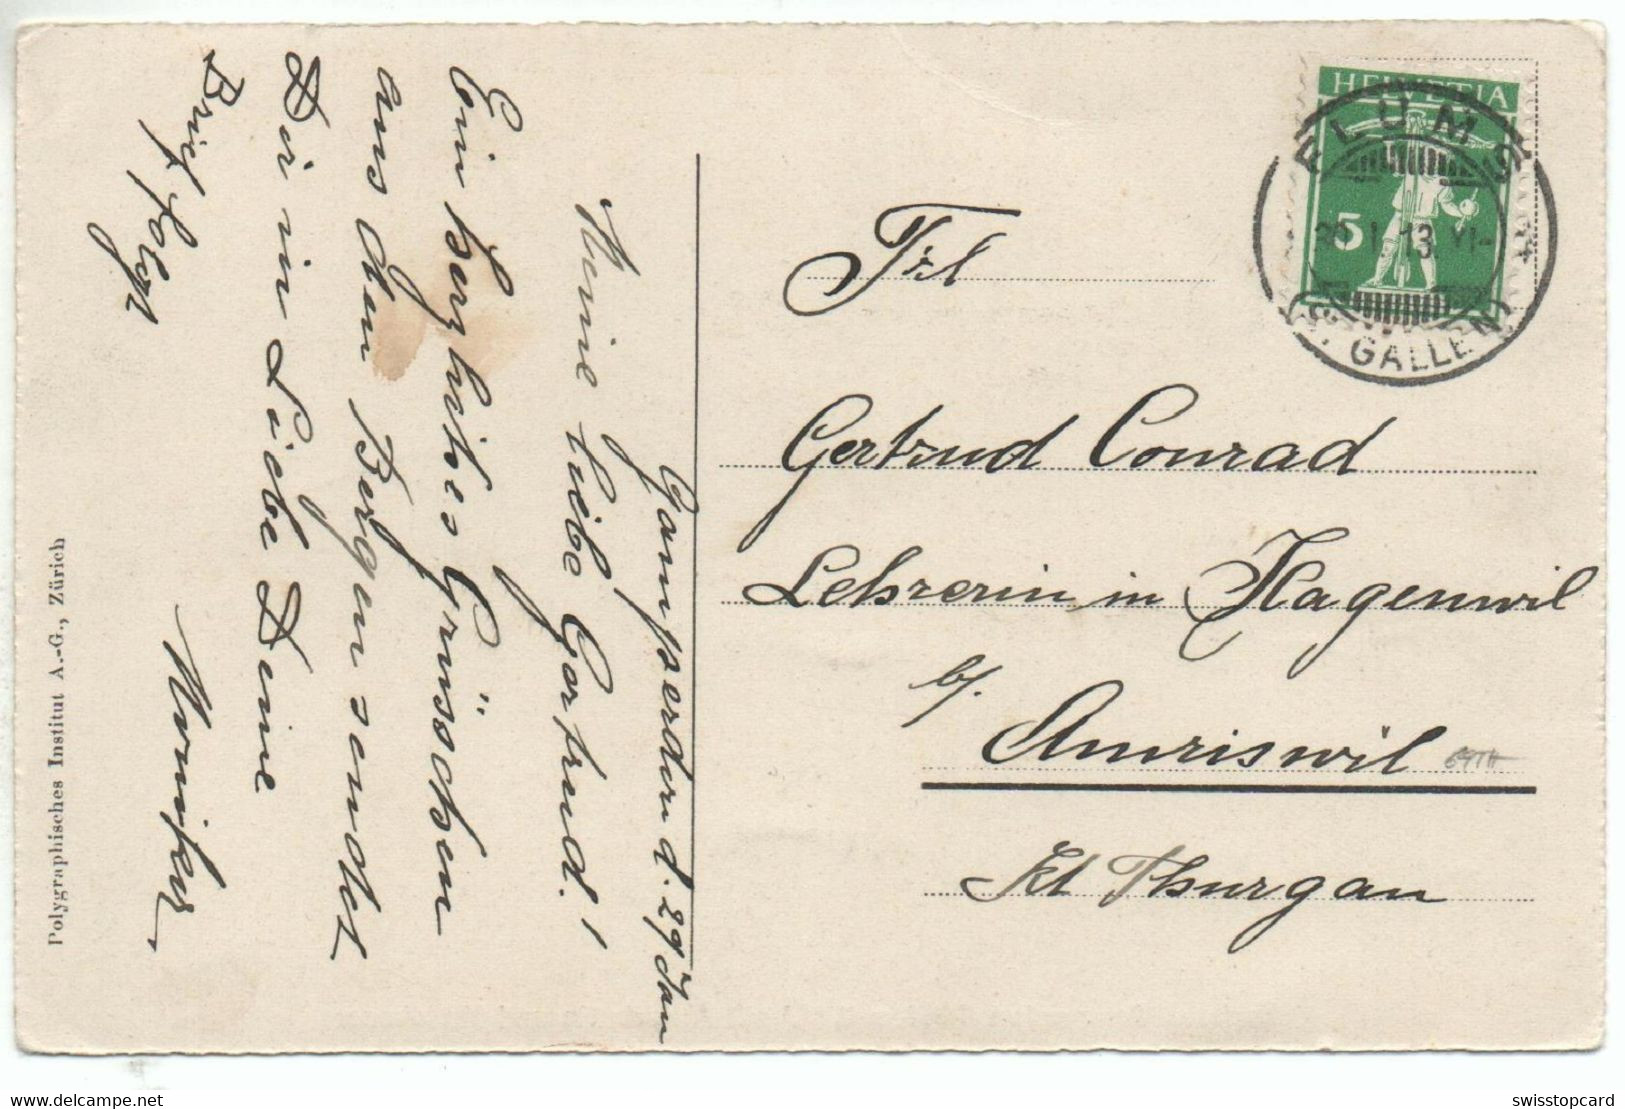 Gampserdun d. 29 Jan
Meine liebe Gertrud!
Ein herzliches Grüsschen
aus den Bergen sendet
Dir in Liebe Deine
Brief folgt
Polygraphisches Institut A.-G., Zürich
HELVETIA
5
FLUMS
I. 13. XI-
(ST. GALLEN)
Frl
Gertrud Conrad
Lehrerin in Hagenwil
b/.
Amriswil
Kt Thurgau
swisstopcard